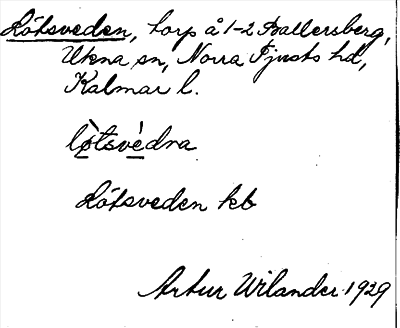 Lötsveden, torp å 1-2 Ballersberg,
Ukna sn, Norra Tjusts hd,
Kalmar l.
lø̀tsvédna
Lötsveden kb
Artur Wilander 1929